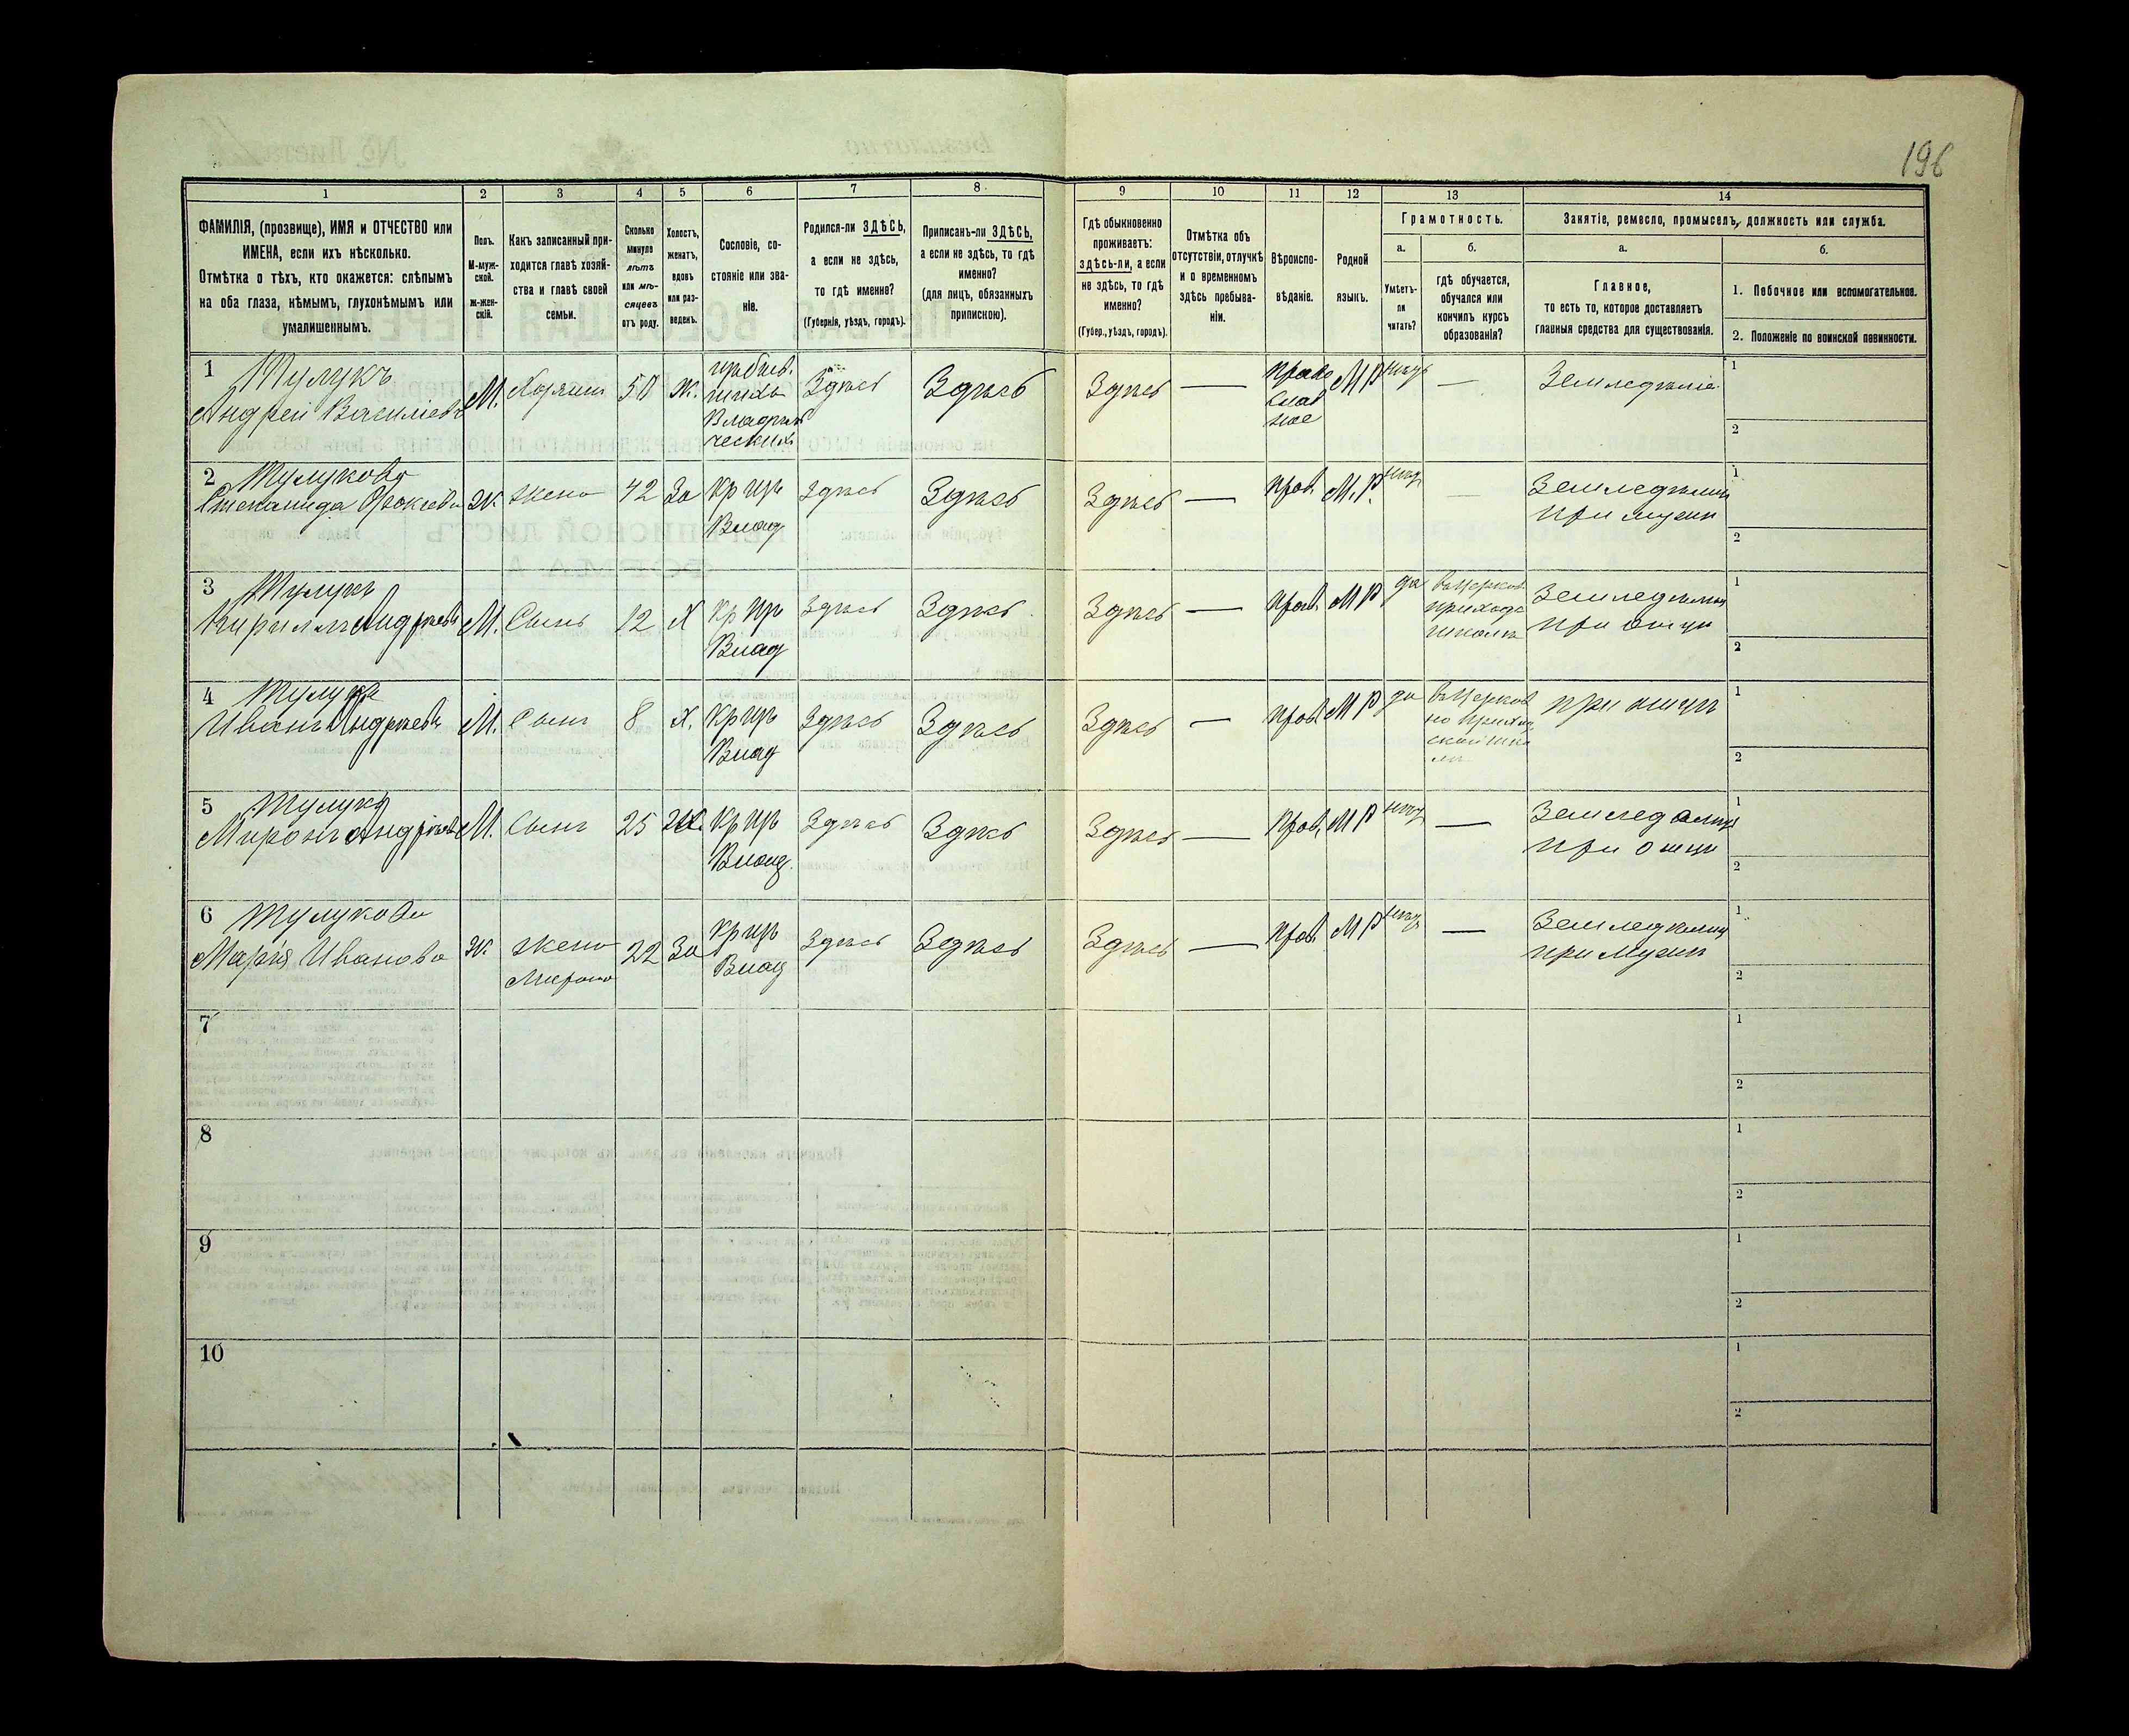 196
1 2 3 4 5 6 7 8 9 10 11 12 13 14
ФАМИЛІЯ, (прозвище), ИМЯ и ОТЧЕСТВО или
ИМЕНА, если ихъ нѣсколько.
Отмѣтка о тѣхъ, кто окажется: слѣпымъ
на оба глаза, нѣмымъ, глухонѣмымъ или
умалишеннымъ.
Полъ.
М-муж-
ской.
Ж-жен-
скій.
Какъ записанный при-
ходится главѣ хозяй-
ства и главѣ своей
семьи.
Сколько
минуло
лѣтъ
или мѣ-
сяцевъ
отъ роду.
Холостъ,
женатъ,
вдовъ
или раз-
веденъ.
Сословіе, со-
стояніе или зва-
ніе.
Родился-ли ЗДѢСЬ,
а если не здѣсь,
то гдѣ именно?
(Губернія, уѣздъ, городъ).
Приписанъ-ли ЗДѢСЬ,
а если не здѣсь, то гдѣ
именно?
(для лицъ, обязанныхъ
припискою).
Гдѣ обыкновенно
проживаетъ:
здѣсь-ли, а если
не здѣсь, то гдѣ
именно?
(Губер., уѣздъ, городъ).
Отмѣтка объ
отсутствіи, отлучкѣ
и о временномъ
здѣсь пребыва-
ніи.
Вѣроиспо-
вѣданіе.
Родной
языкъ.
Грамотность.
а.
Умѣетъ-
ли
читать?
б.
гдѣ обучается,
обучался или
кончилъ курсъ
образованія?
Занятіе, ремесло, промыселъ, должность или служба.
а.
Главное,
то есть то, которое доставляетъ
главныя средства для существованія.
б.
1. Побочное или вспомогательное.
2. Положеніе по воинской повинности.
1 Тулукъ
Андрей Васильевъ
М. Хозяин 50 ж. Здѣсь Здѣсь Здѣсь — Право
слав
ное
МР нѣтъ — Земледѣліе
1
2
2 Тулукова
Степанида Ж. жена 42 За Кр
Влад
Здѣсь Здѣсь Здѣсь — Прав. М.Р. нѣтъ —
при мужѣ
1
2
3 Тулукъ
Кириллъ Андреевъ М. Сынъ 12 Х Кр
Влад
Здѣсь Здѣсь Здѣсь — Прав МР да
школѣ
при отцѣ
1
2
4 Тулукъ
Иванъ Андреевъ М. Сынъ 8 Х. Кр
Влад
Здѣсь Здѣсь Здѣсь — Прав МР да
при отцѣ
1
2
5 Тулукъ
Миронъ Андреевъ М. Сынъ 25 Ж. Кр
Влад.
Здѣсь Здѣсь Здѣсь — Прав МР нѣтъ —
при отцѣ
1
2
6 Тулукова
Марія Иванова Ж. жена
Мирона
22 За Кр
Влад
Здѣсь Здѣсь Здѣсь — Прав МР нѣтъ —
при мужѣ
1
2
7
1
2
8
1
2
9
1
2
10
1
2